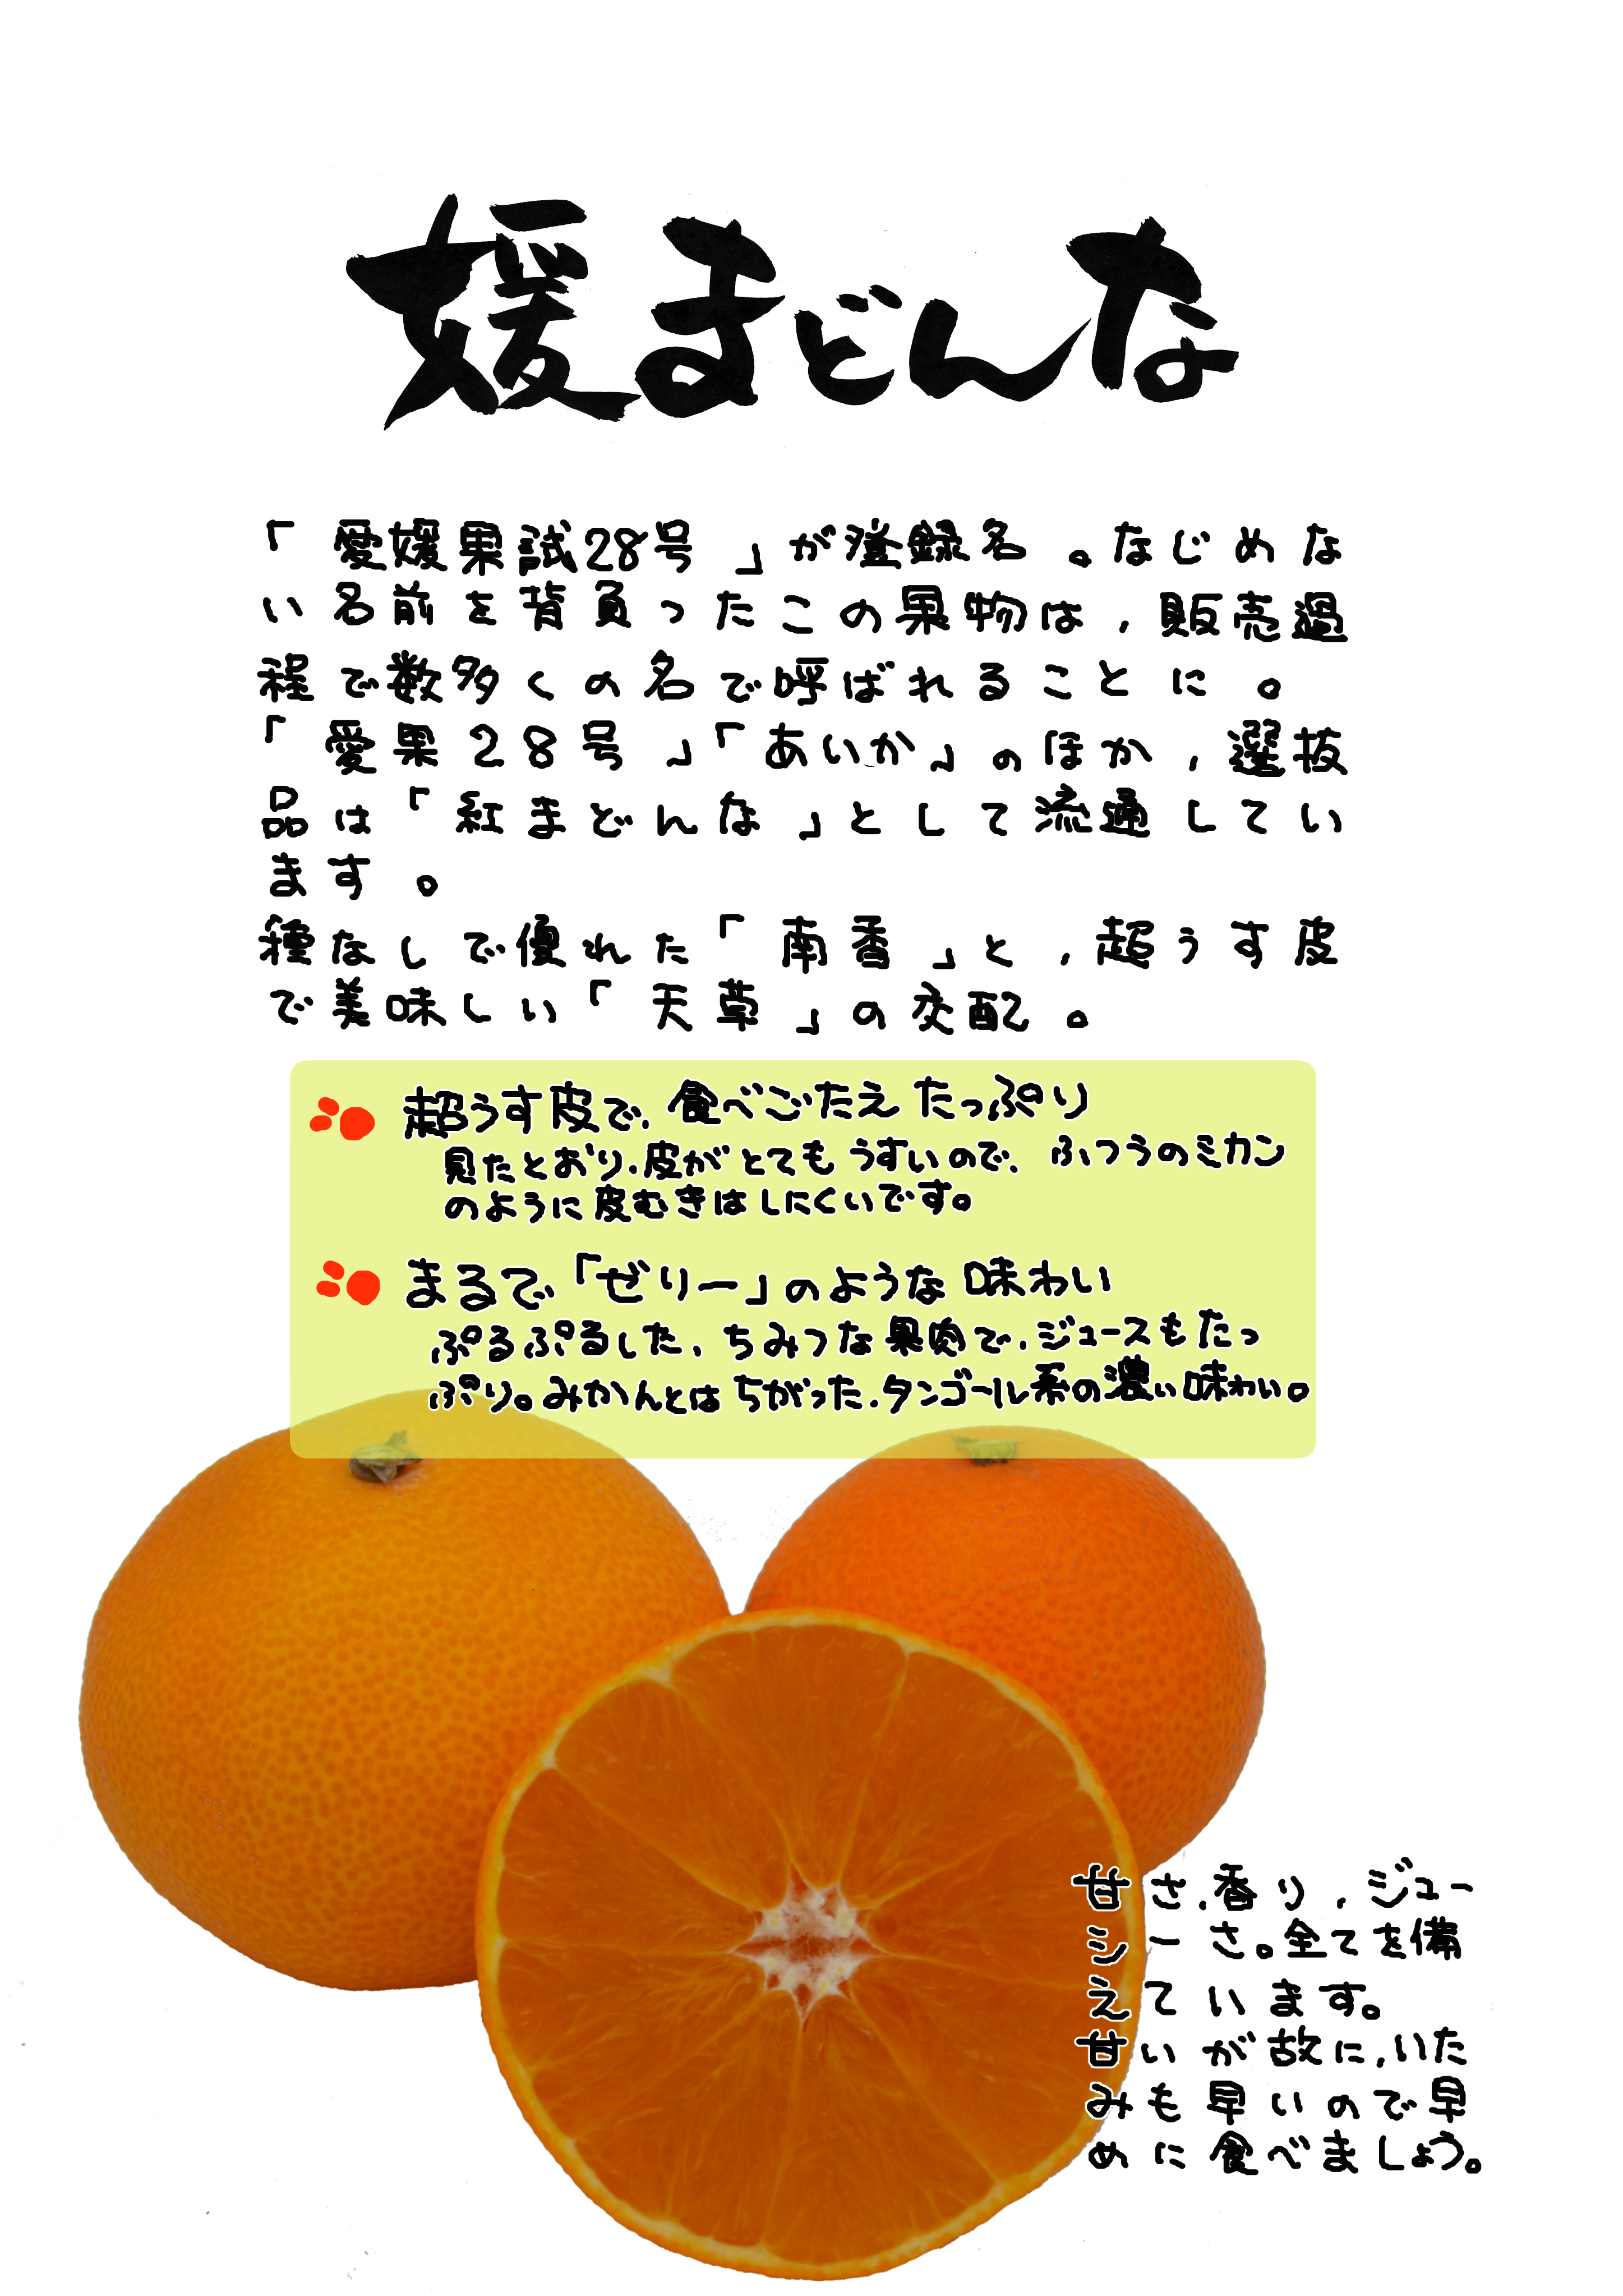 媛まどんな
「愛媛果試28号」が登録名。なじめな
い名前を背負ったこの果物は，販売過
程で数多くの名で呼ばれることに。
「愛果28号」「あいか」のほか，選抜
品は「紅まどんな」として流通してい
ます。
種なしで優れた「南香」と，超うす皮
で美味しい「天草」の交配。
超うす皮で，食べごたえ たっぷり
見たとおり，皮がとてもうすいので， ふつうのミカン
のように皮むきはしにくいです。
まるで「ぜりー」のような味わい
ぷるぷるした，ちみつな果肉で，ジュースもたっ
ぷり。みかんとはちがった，タンゴール系の濃い味わい。
甘さ，香り，ジュー
シーさ。全てを備
えています。
甘いが故に，いた
みも早いので早
めに食べましょう。